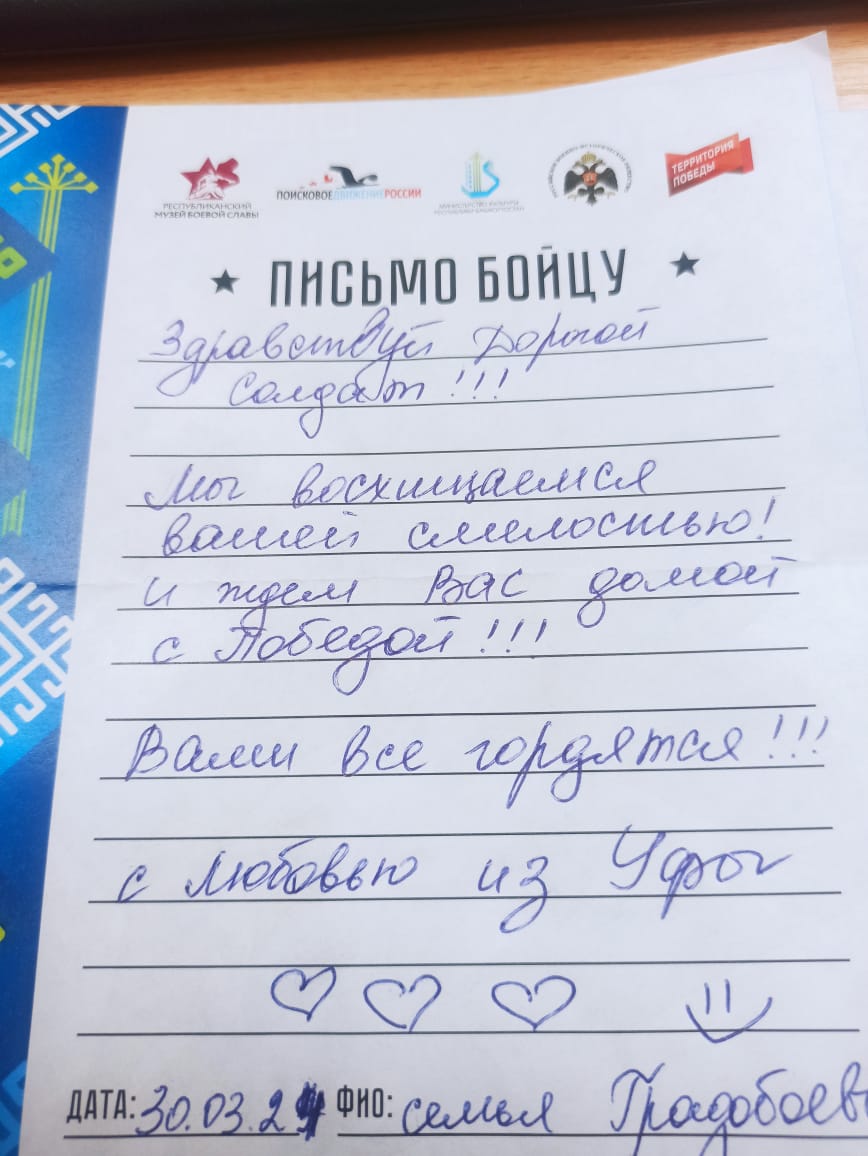 РЕСПУБЛИКАНСКИЙ
МУЗЕЙ БОЕВОЙ СЛАВЫ
ПОИСКОВОЕДВИЖЕНИЕРОССИИ
МИНИСТЕРСТВО КУЛЬТУРЫ
РЕСПУБЛИКИ БАШКОРТОСТАН
ТЕРРИТОРИЯ
ПОБЕДЫ
ПИСЬМО БОЙЦУ
Здравствуй Дорогой
солдат!!!
Мы восхищаемся
вашей смелостью!
и ждем Вас домой
с Победой!!!
Вами все гордятся!!!
с любовью из Уфы
ДАТА: 30.03.24 ФИО: семья